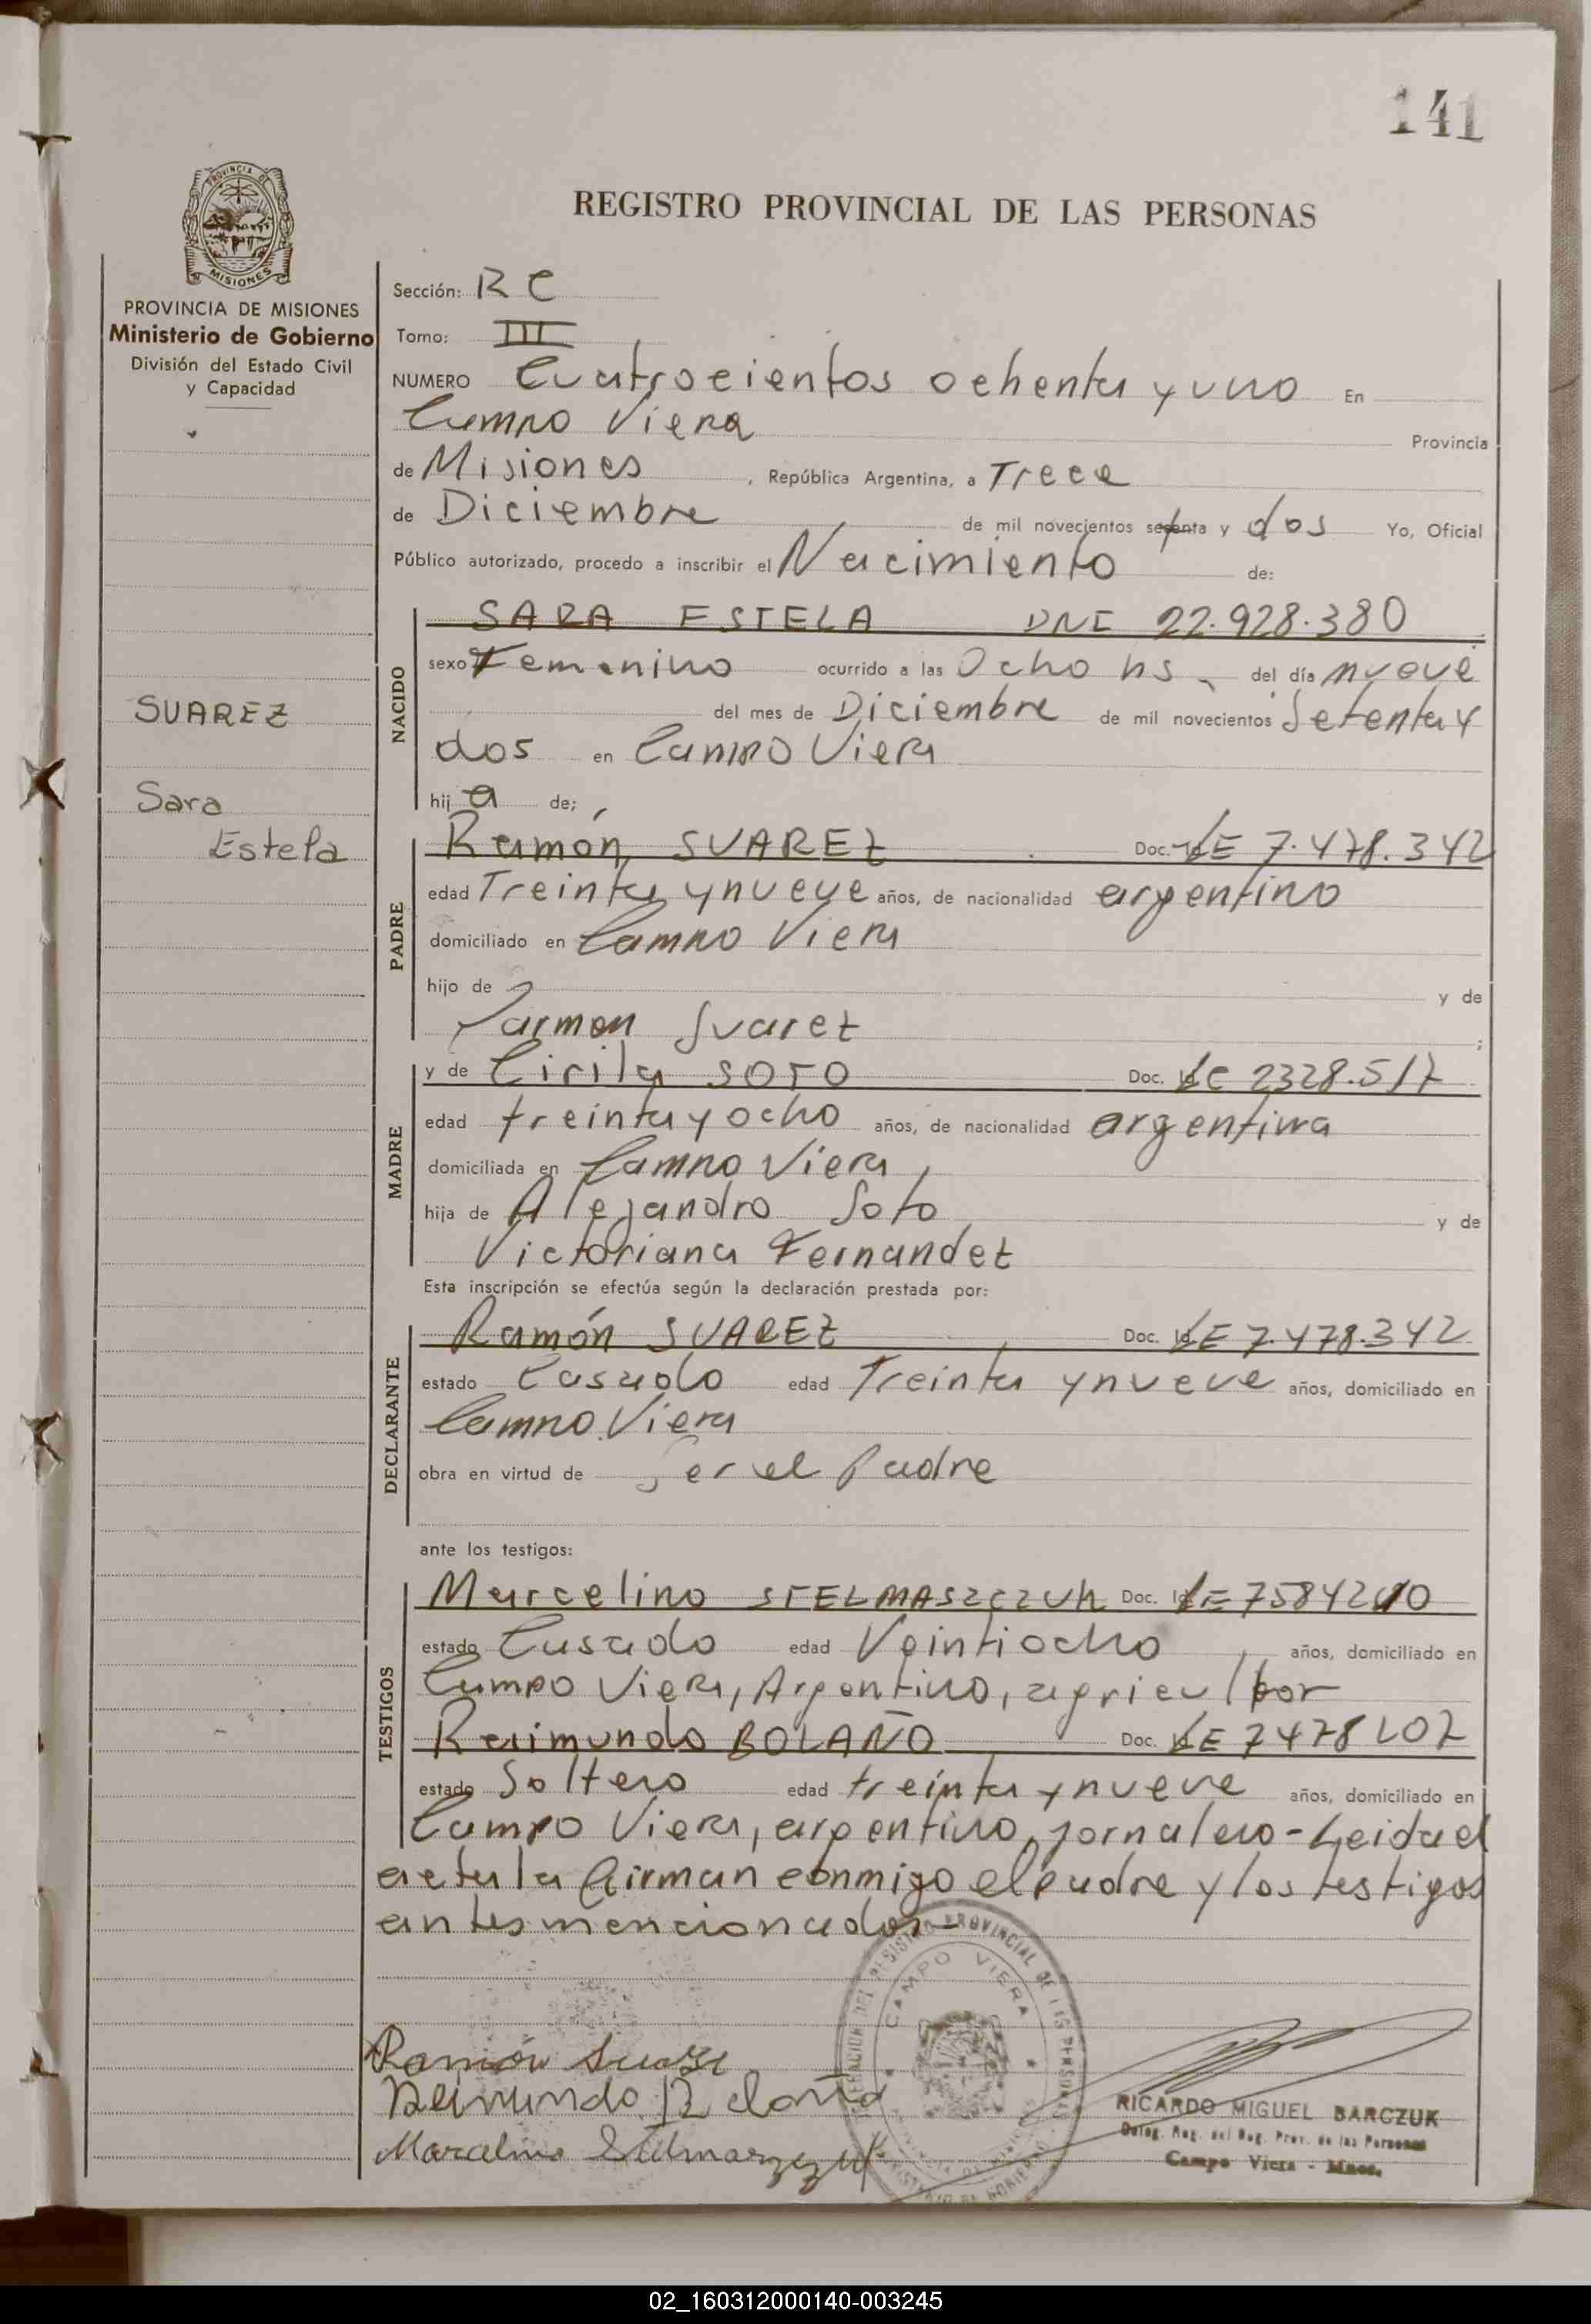 141
PROVINCIA DE
MISIONES
REGISTRO PROVINCIAL DE LAS PERSONAS
PROVINCIA DE MISIONES
Ministerio de Gobierno
División del Estado Civil
y Capacidad
SUAREZ
Sara
Estela
Sección: RC
Tomo: III
NUMERO Cuatrocientos ochenta y uno En
Campo Viera Provincia
de Misiones, República Argentina, a Trece
de Diciembre de mil novecientos setenta y dos Yo, Oficial
Público autorizado, procedo a inscribir el Nacimiento de:
NACIDO
SARA ESTELA DNI 22.928.380
sexo Femenino ocurrido a las Ocho hs del día nueve
del mes de Diciembre de mil novecientos Setenta y
dos en Campo Viera
hij a de;
PADRE
Ramón SUAREZ Doc. LE 7.478.342
edad Treinta y nueve años, de nacionalidad argentino
domiciliado en Campo Viera
hijo de y de
Carmen Suarez ;
MADRE
y de Cirila SOTO Doc. LC 2328.517
edad treinta y ocho años, de nacionalidad argentina
domiciliada en Campo Viera
hija de Alejandro Soto y de
Victoriana Fernandez
Esta inscripción se efectúa según la declaración prestada por:
DECLARANTE
Ramón SUAREZ Doc. LE 7.478.342
estado Casado edad Treinta y nueve años, domiciliado en
Campo Viera
obra en virtud de Ser el Padre
ante los testigos:
TESTIGOS
Marcelino STELMASZCZUK Doc. LE
estado Casado edad Veintiocho años, domiciliado en
Campo Viera, Argentino, agricultor
Raimundo BOLAÑO Doc. LE 7478107
estado Soltero edad treinta y nueve años, domiciliado en
Campo Viera, argentino, jornalero - Leida el
acta la firman conmigo el padre y los testigos
antes mencionados-
Ramón Suarez
Reimundo Bolaño
Marcelino Stelmaszczuk
DELEGACION DEL REGISTRO PROVINCIAL DE LAS PERSONAS
CAMPO VIERA
MINISTERIO DE GOBIERNO
RICARDO MIGUEL BARCZUK
Deleg. Reg. del Reg. Prov. de las Personas
Campo Viera - Mnes.
02_160312000140-003245